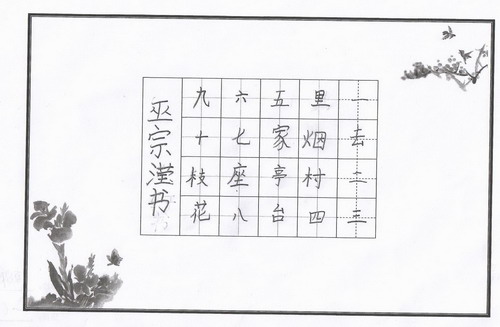 一去二三
里烟村四
五家亭台
六七座八
九十枝花
巫宗滢书